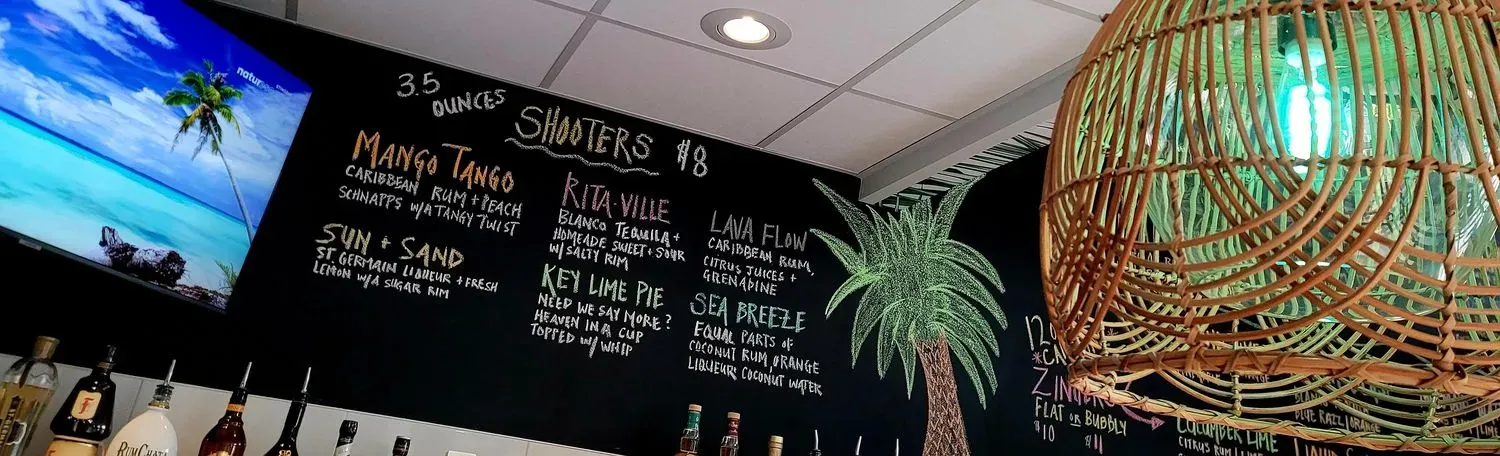 natur
3.5
OUNCES
SHOOTERS $8
MANGO TANGO
CARIBBEAN RUM + PEACH
SCHNAPPS W/A TANGY TWIST
SUN + SAND
ST GERMAIN LIQUEUR + FRESH
LEMON W/A SUGAR RIM
RITA-VILLE
BLANCO TEQUILA +
HOMEADE SWEET + SOUR
W/ SALTY RIM
KEY LIME PIE
NEED WE SAY MORE?
HEAVEN IN A CUP
TOPPED W/ WHIP
LAVA FLOW
CARIBBEAN RUM,
CITRUS JUICES +
GRENADINE
SEA BREEZE
EQUAL PARTS OF
COCONUT RUM, ORANGE
LIQUEUR, COCONUT WATER
FLAT OR BUBBLY
$10 $11
CUCUMBER LIME
BLUE RAZZ/ORANGE
RUMCHATA